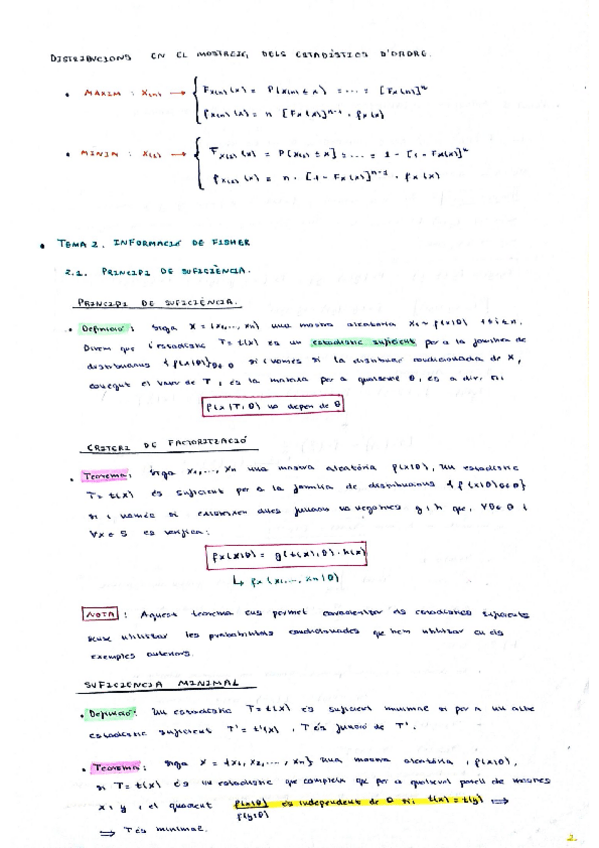 DISTRIBUCIONS EN EL MOSTREIG DELS ESTADÍSTICS D'ORDRE.
• MÀXIM : X(n) → { F_X(n)(x) = P(X(n) ≤ x) = ... = [F_X(x)]^n
f_X(n)(x) = n [F_X(x)]^n-1 · f_X(x)
• MÍNIM : X(1) → { F_X(1)(x) = P[X(1) ≤ x] = ... = 1 - [1 - F_X(x)]^n
f_X(1)(x) = n · [1 - F_X(x)]^n-1 · f_X(x)
• TEMA 2. INFORMACIÓ DE FISHER
2.1. PRINCIPI DE SUFICIÈNCIA.
PRINCIPI DE SUFICIÈNCIA.
• Definició: Siga X = (X1,..., Xn) una mostra aleatòria Xi ~ f(x|θ) 1≤i≤n.
Direm que l'estadístic T = t(X) és un estadístic suficient per a la família de
distribucions {f(x|θ)}θ∈Θ si i només si la distribució condicionada de X,
conegut el valor de T, és la mateixa per a qualsevol θ, és a dir, si
f(x|T,θ) no depen de θ
CRITERI DE FACTORITZACIÓ
• Teorema: Siga X1,..., Xn una mostra aleatòria f(x|θ), un estadístic
T = t(X) és suficient per a la família de distribucions {f(x|θ)θ∈Θ}
si i només si existeixen dues funcions no negatives g i h que, ∀θ∈Θ i
∀x∈S es verifica:
f_X(x|θ) = g(t(x),θ)·h(x)
↳ f_X(x1,..., xn|θ)
NOTA : Aquest teorema ens permet caracteritzar els estadístics suficients
sense utilitzar les probabilitats condicionades que hem utilitzar en els
exemples anteriors.
SUFICIENCIA MINIMAL
• Definició: Un estadístic T = t(X) és suficient minimal si per a un altre
estadístic suficient T' = t'(X), T és funció de T'.
• Teorema: Siga X = {X1, X2,..., Xn} una mostra aleatòria, f(x|θ),
si T = t(X) és un estadístic que compleix que per a qualsevol parell de mostres
x i y, el quocient f(x|θ)/f(y|θ) és independent de θ si, t(x) = t(y) ⟹
⟹ T és minimal.
2.